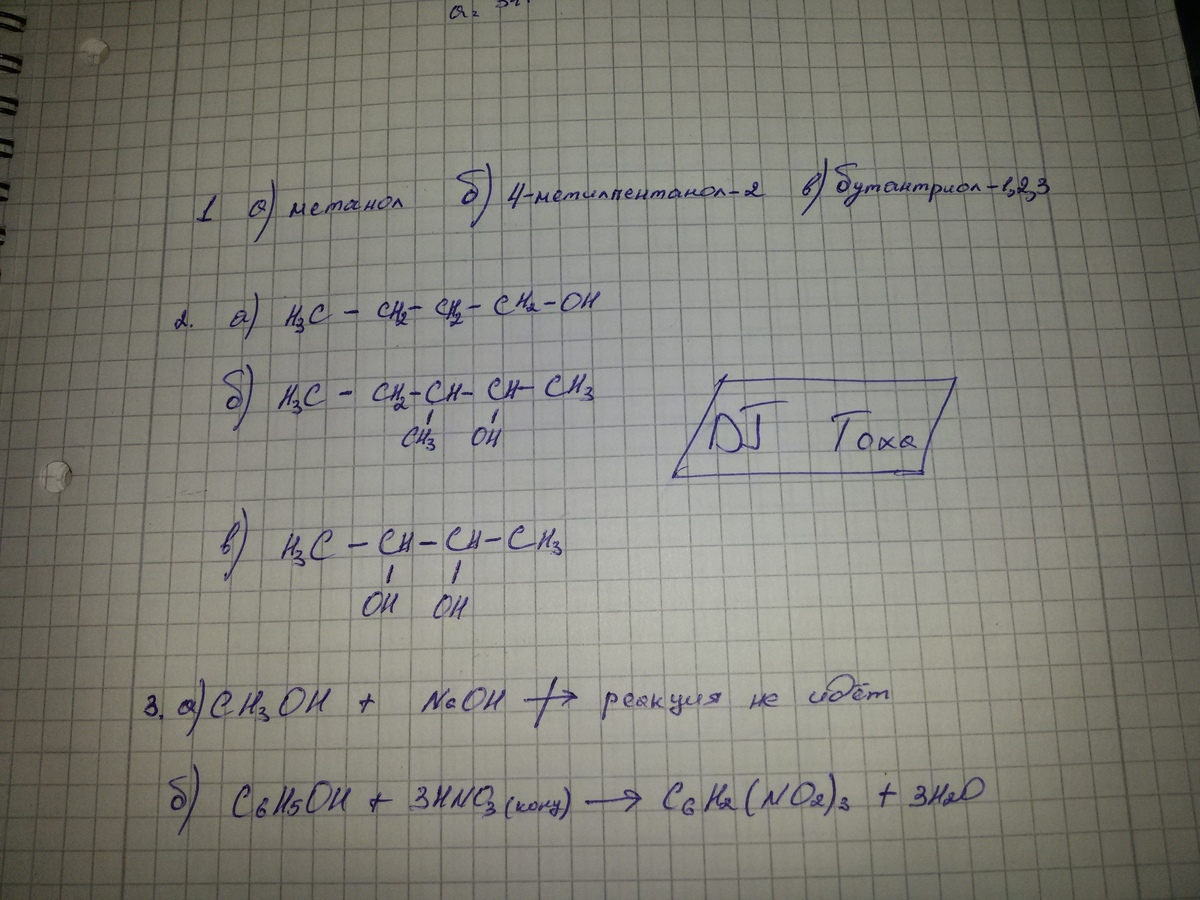 1 а) метанол б) 4-метилпентанол-2 в) бутантриол-1,2,3
2. а) H₃C - CH₂- CH₂- CH₂-OH
б) H₃C - CH₂-CH- CH- CH₃
CH₃ OH
DJ Тоха
в) H₃C - CH - CH - CH₃
OH OH
3. а) CH₃OH + NaOH ↛ реакция не идёт
б) C₆H₅OH + 3HNO₃ (конц) → C₆H₂(NO₂)₃ + 3H₂O